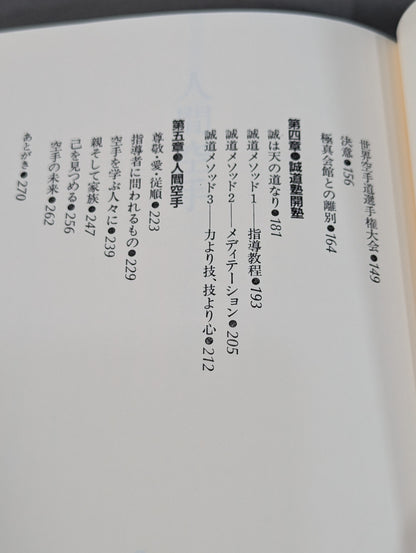 世界空手道選手権大会●149
決意●156
極真会館との離別●164
第四章●誠道塾開塾
誠は天の道なり●181
誠道メソッド1――指導教程●193
誠道メソッド2――メディテーション●205
誠道メソッド3――力より技、技より心●212
第五章●人間空手
尊敬・愛・従順●223
指導者に問われるもの●229
空手を学ぶ人々に●239
親そして家族●247
己を見つめる●256
空手の未来●262
あとがき●270